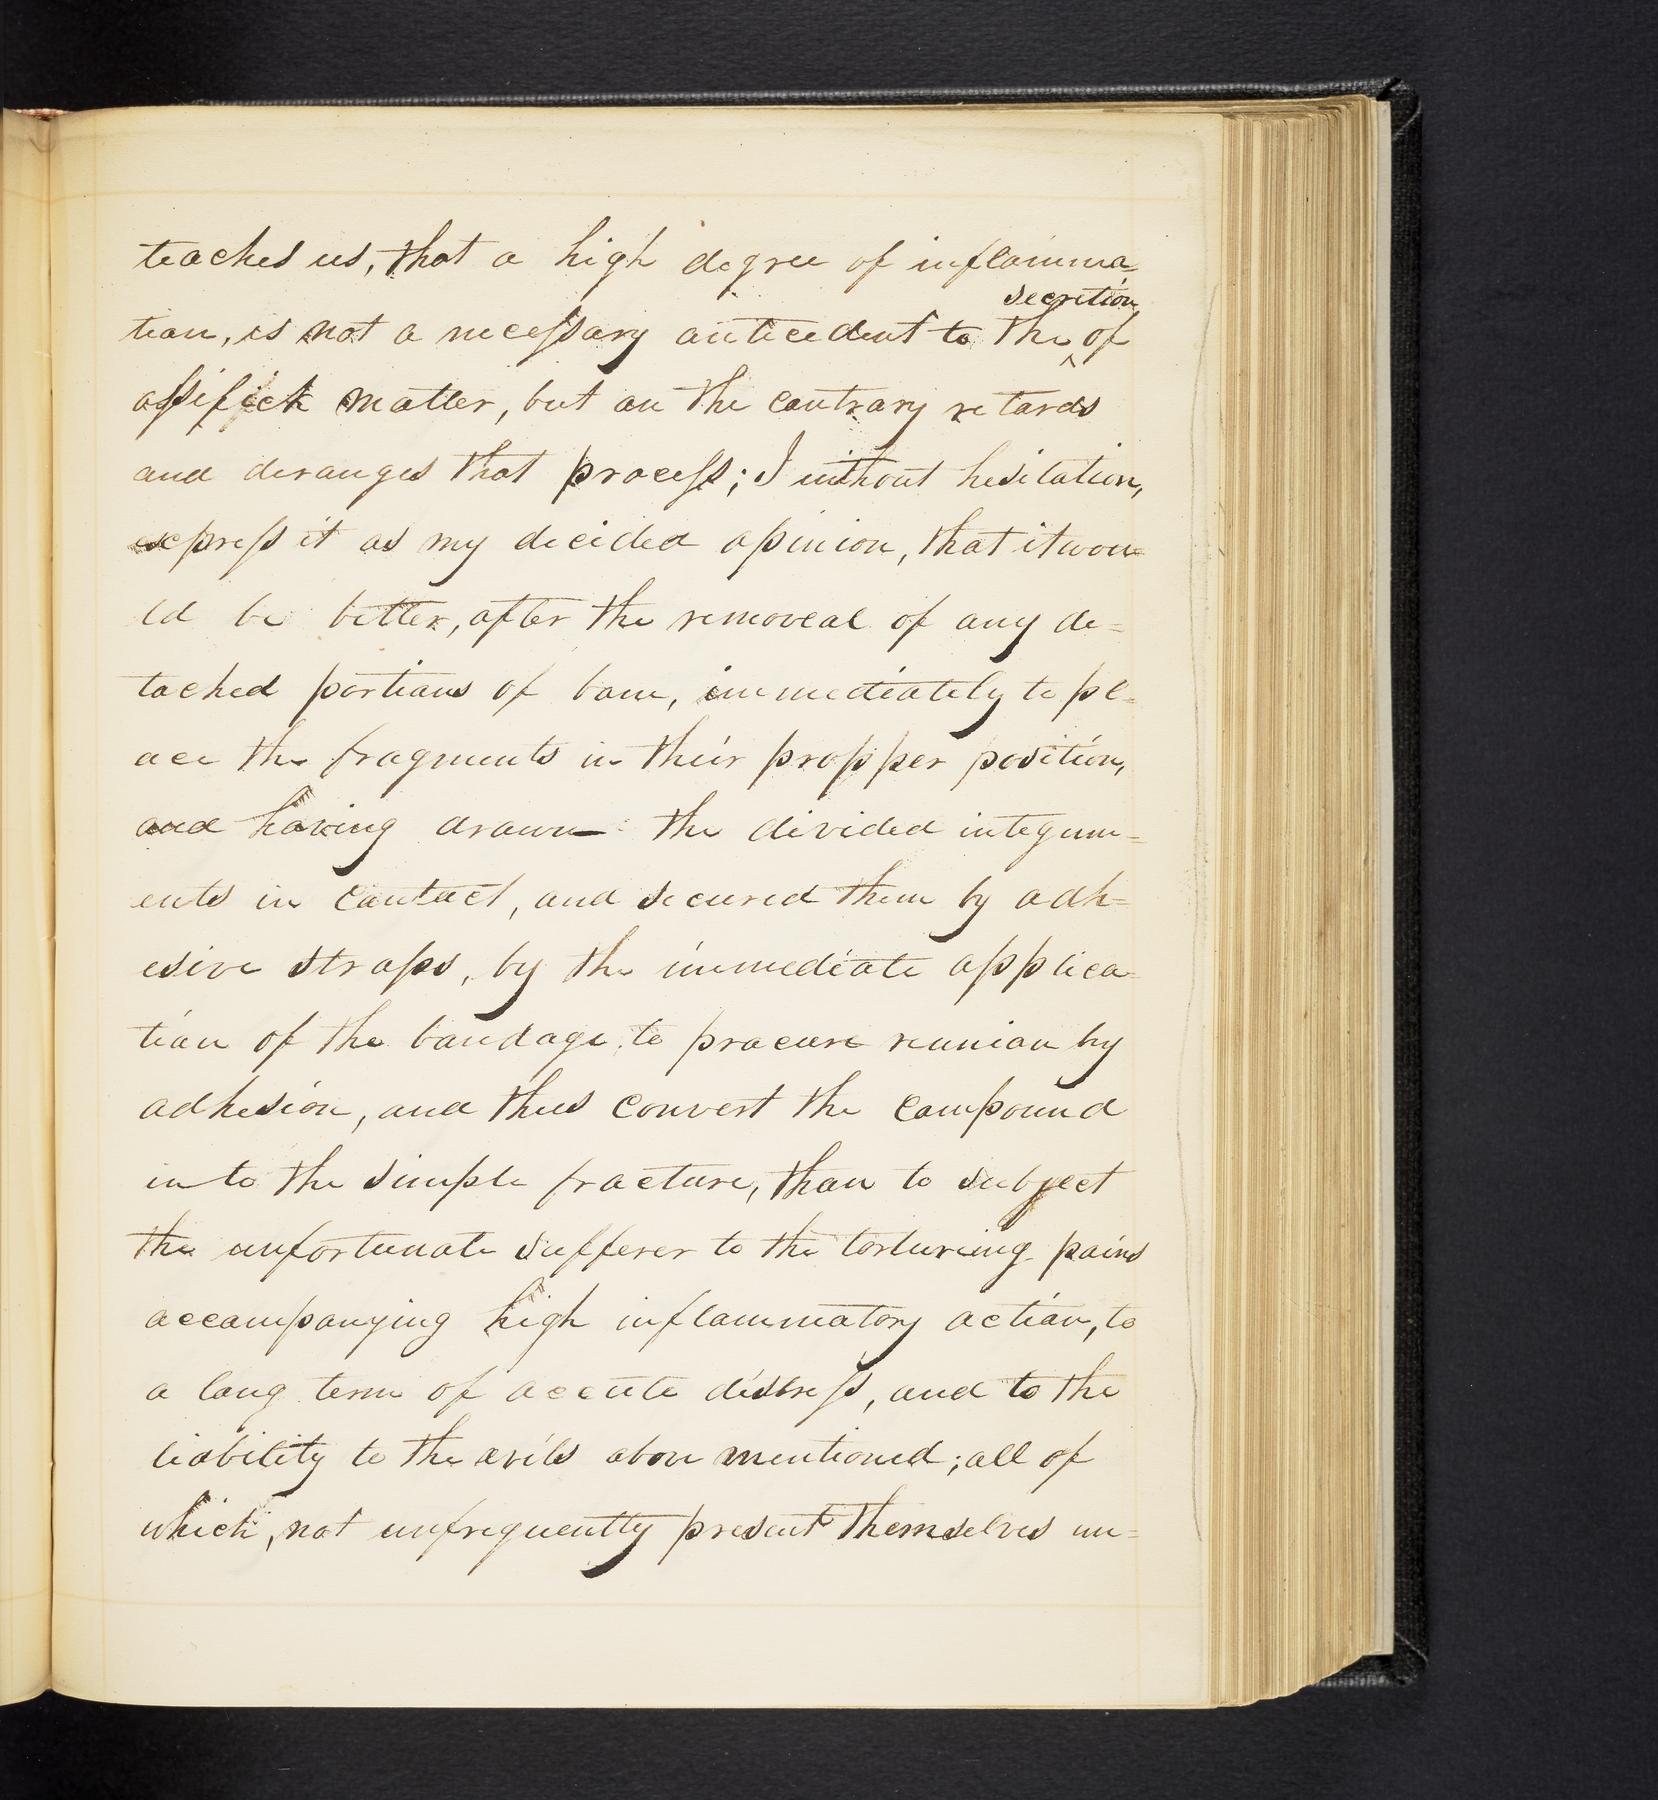 teaches us, that a high degree of inflamma=
secretion
tion, is not a necessary antecedent to the ^ of
ossifick matter, but on the contrary retards
and deranges that process; I without hesitation,
express it as my decided opinion, that it wou=
ld be better, after the removeal of any de=
tached portions of bone, immediately to pl=
ace the fragments in their propper position,
and having drawn the divided integum=
ents in contact, and secured them by adh=
esive straps, by the immediate applica=
tion of the bandage, to procure reunion by
adhesion, and thus convert the compound
into the simple fracture, than to subject
the unfortunate sufferer to the torturing pains
accompanying high inflammatory action, to
a long term of accute distress, and to the
liability to the evils above mentioned; all of
which, not unfrequently present themselves un=